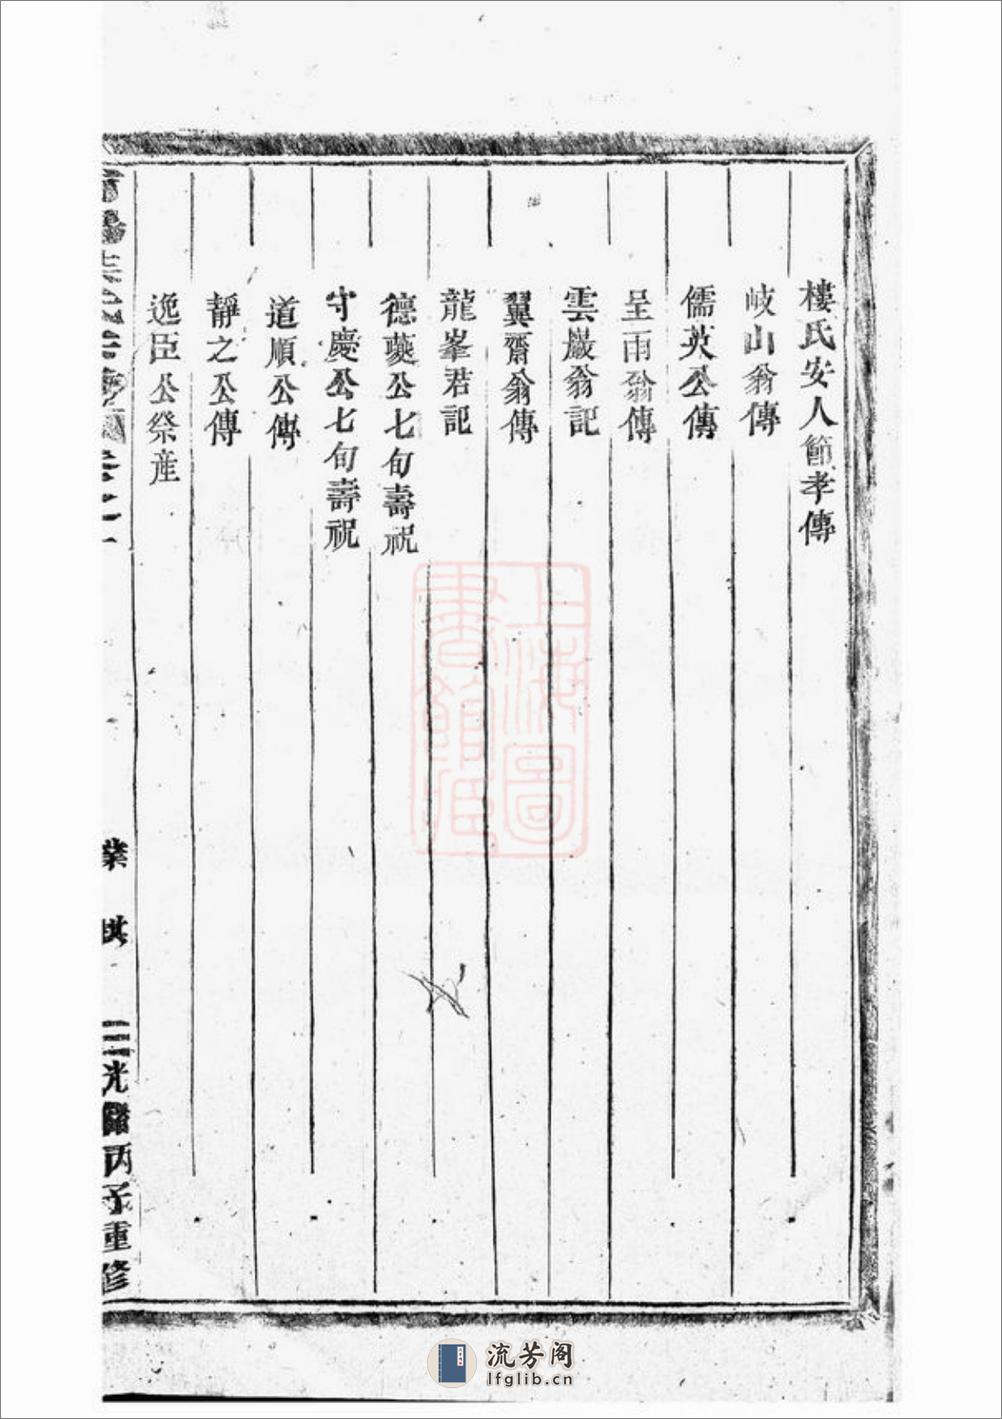 樓氏安人節孝傳
岐山翁傳
儒英公傳
呈雨翁傳
雲巖翁記
翼齋翁傳
龍峯君記
德夔公七旬壽祝
守慶公七旬壽祝
道順公傳
靜之公傳
逸臣公祭産
卷之一
三
光緒丙子重修
上海圖書館藏
流芳阁
lfglib.cn